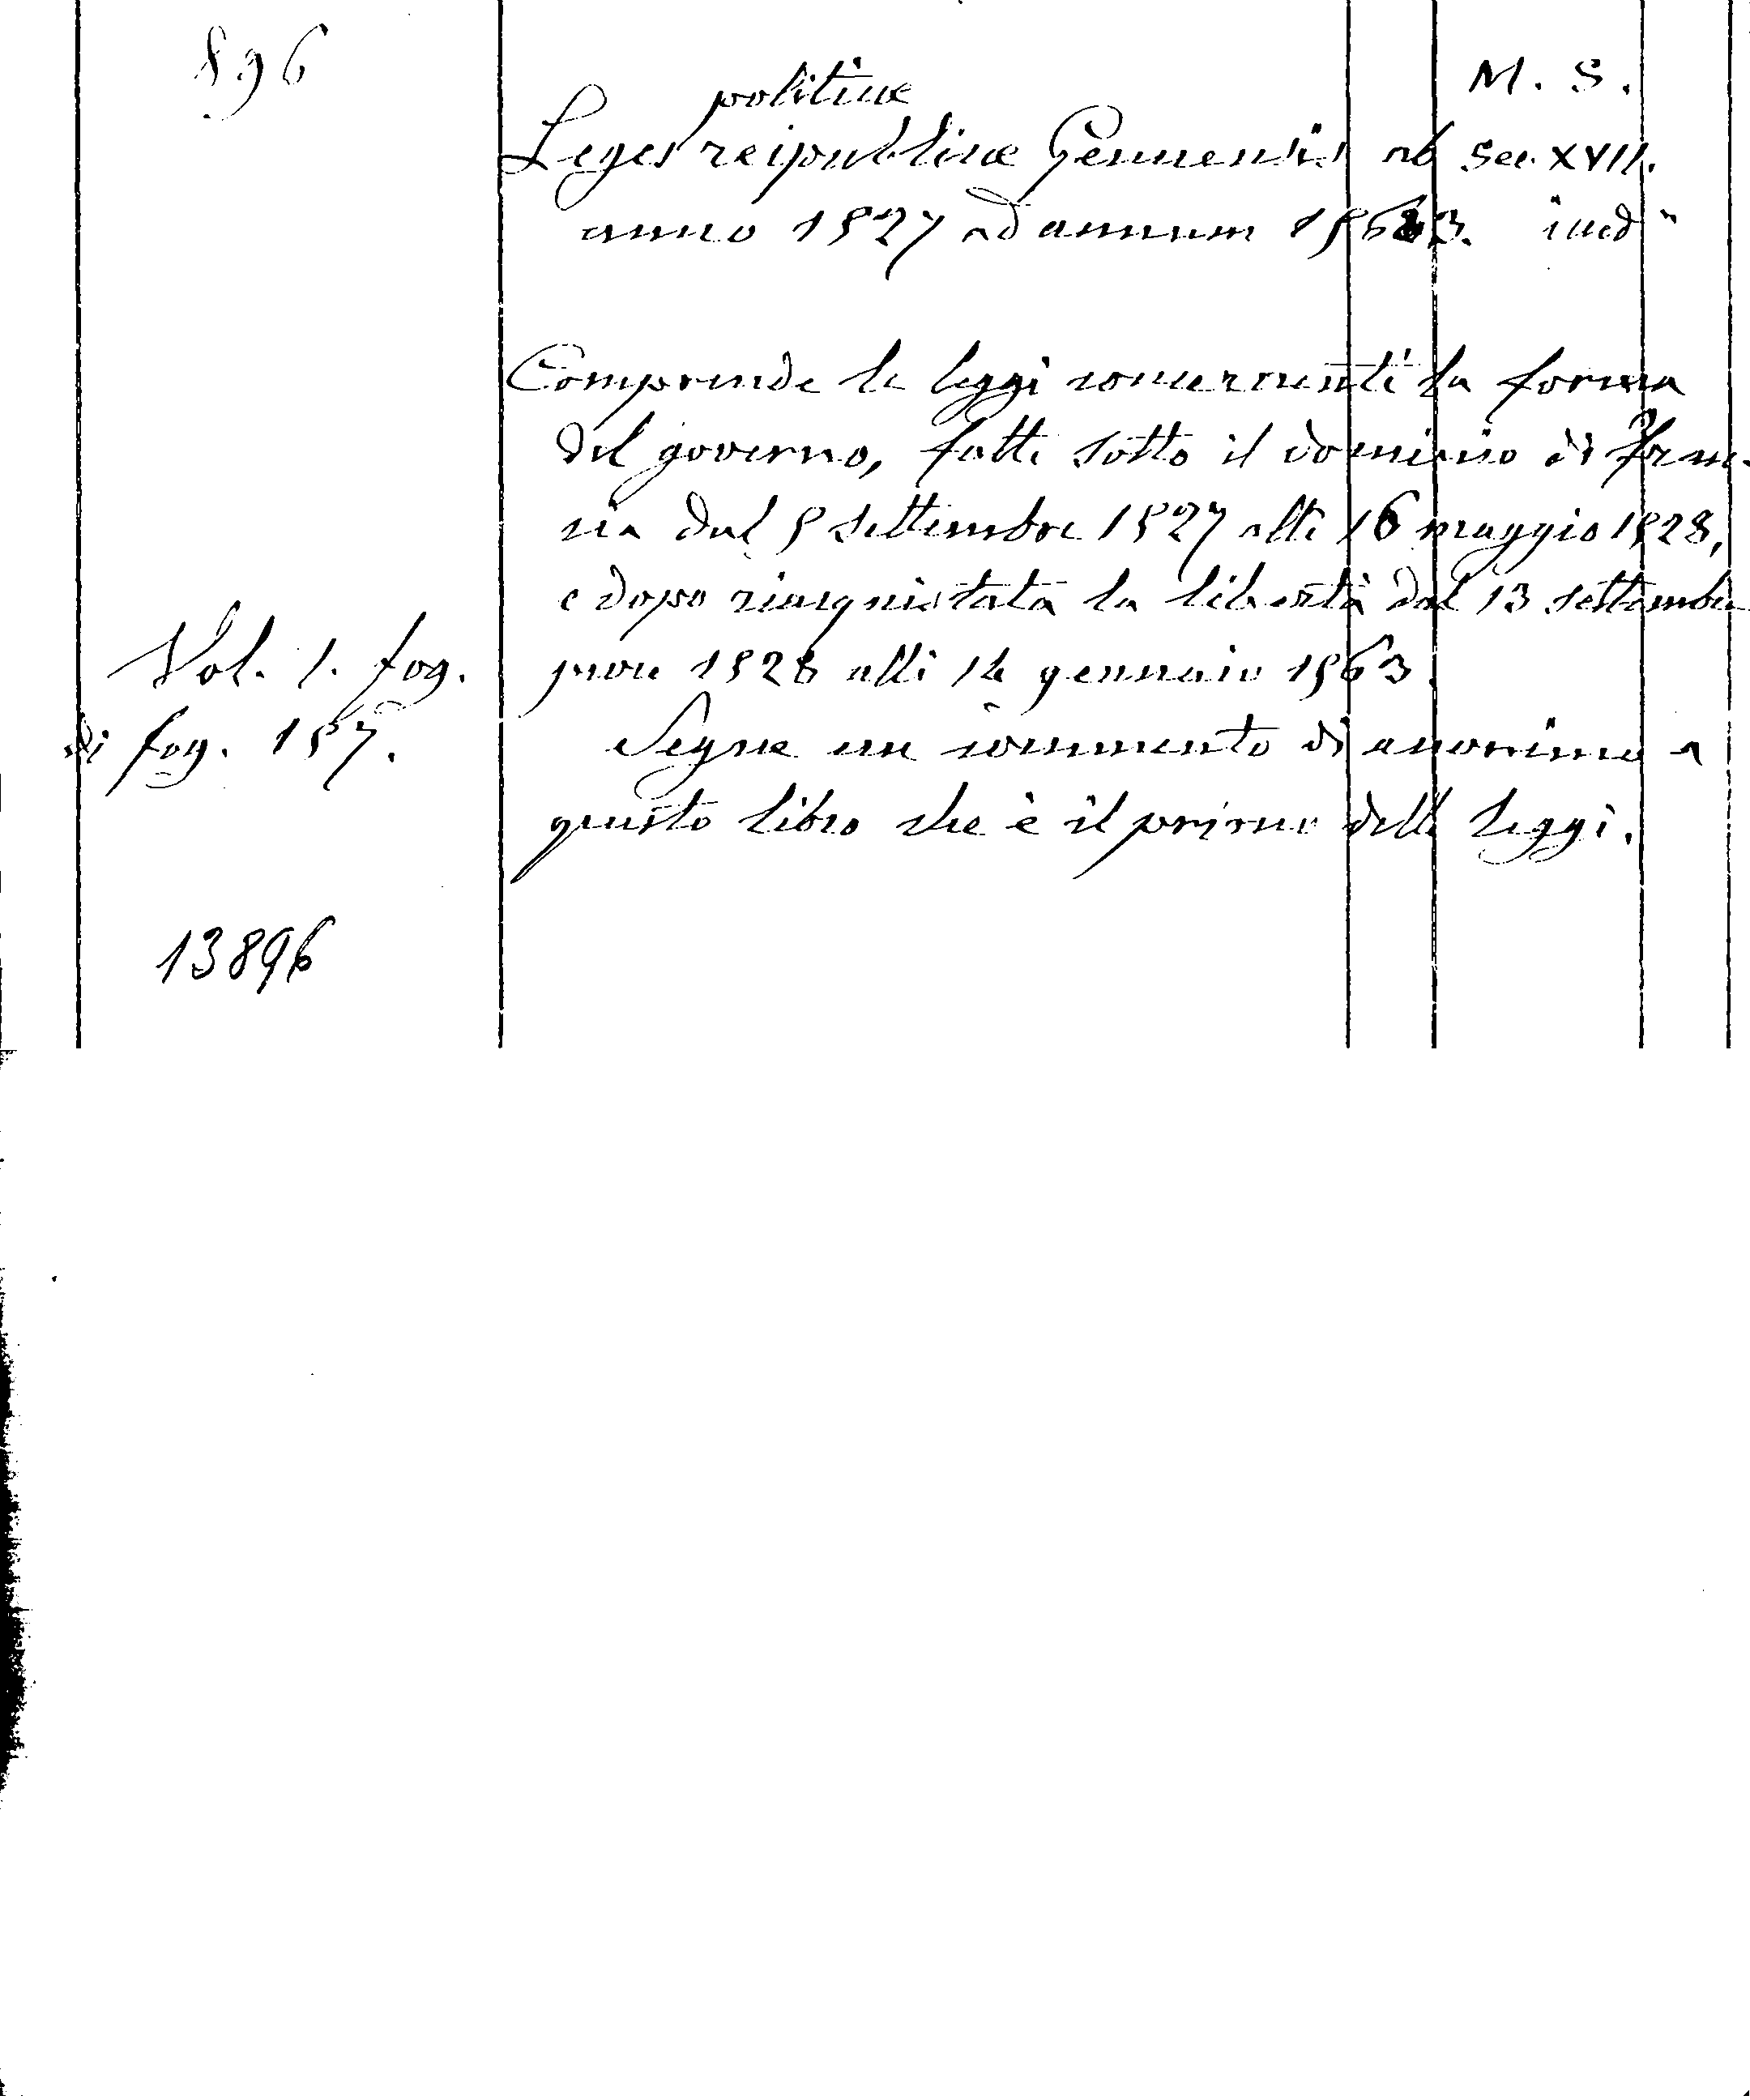 896
M. S.
politicæ
Leges reipublicæ Genuensis ab Sec. XVII.
anno 1527 ad annum 1563. ined.
Comprende le leggi concernenti la forma
del governo, fatte sotto il dominio di Fran-
cia dal 5 settembre 1527 alli 16 maggio 1528,
e dopo riacquistata la libertà dal 13 settembre
1528 alli 14 gennaio 1563.
Vol. 1. fog.
di fog. 157.
Segue un commento di anonimo a
questo libro che è il primo delle leggi.
13896